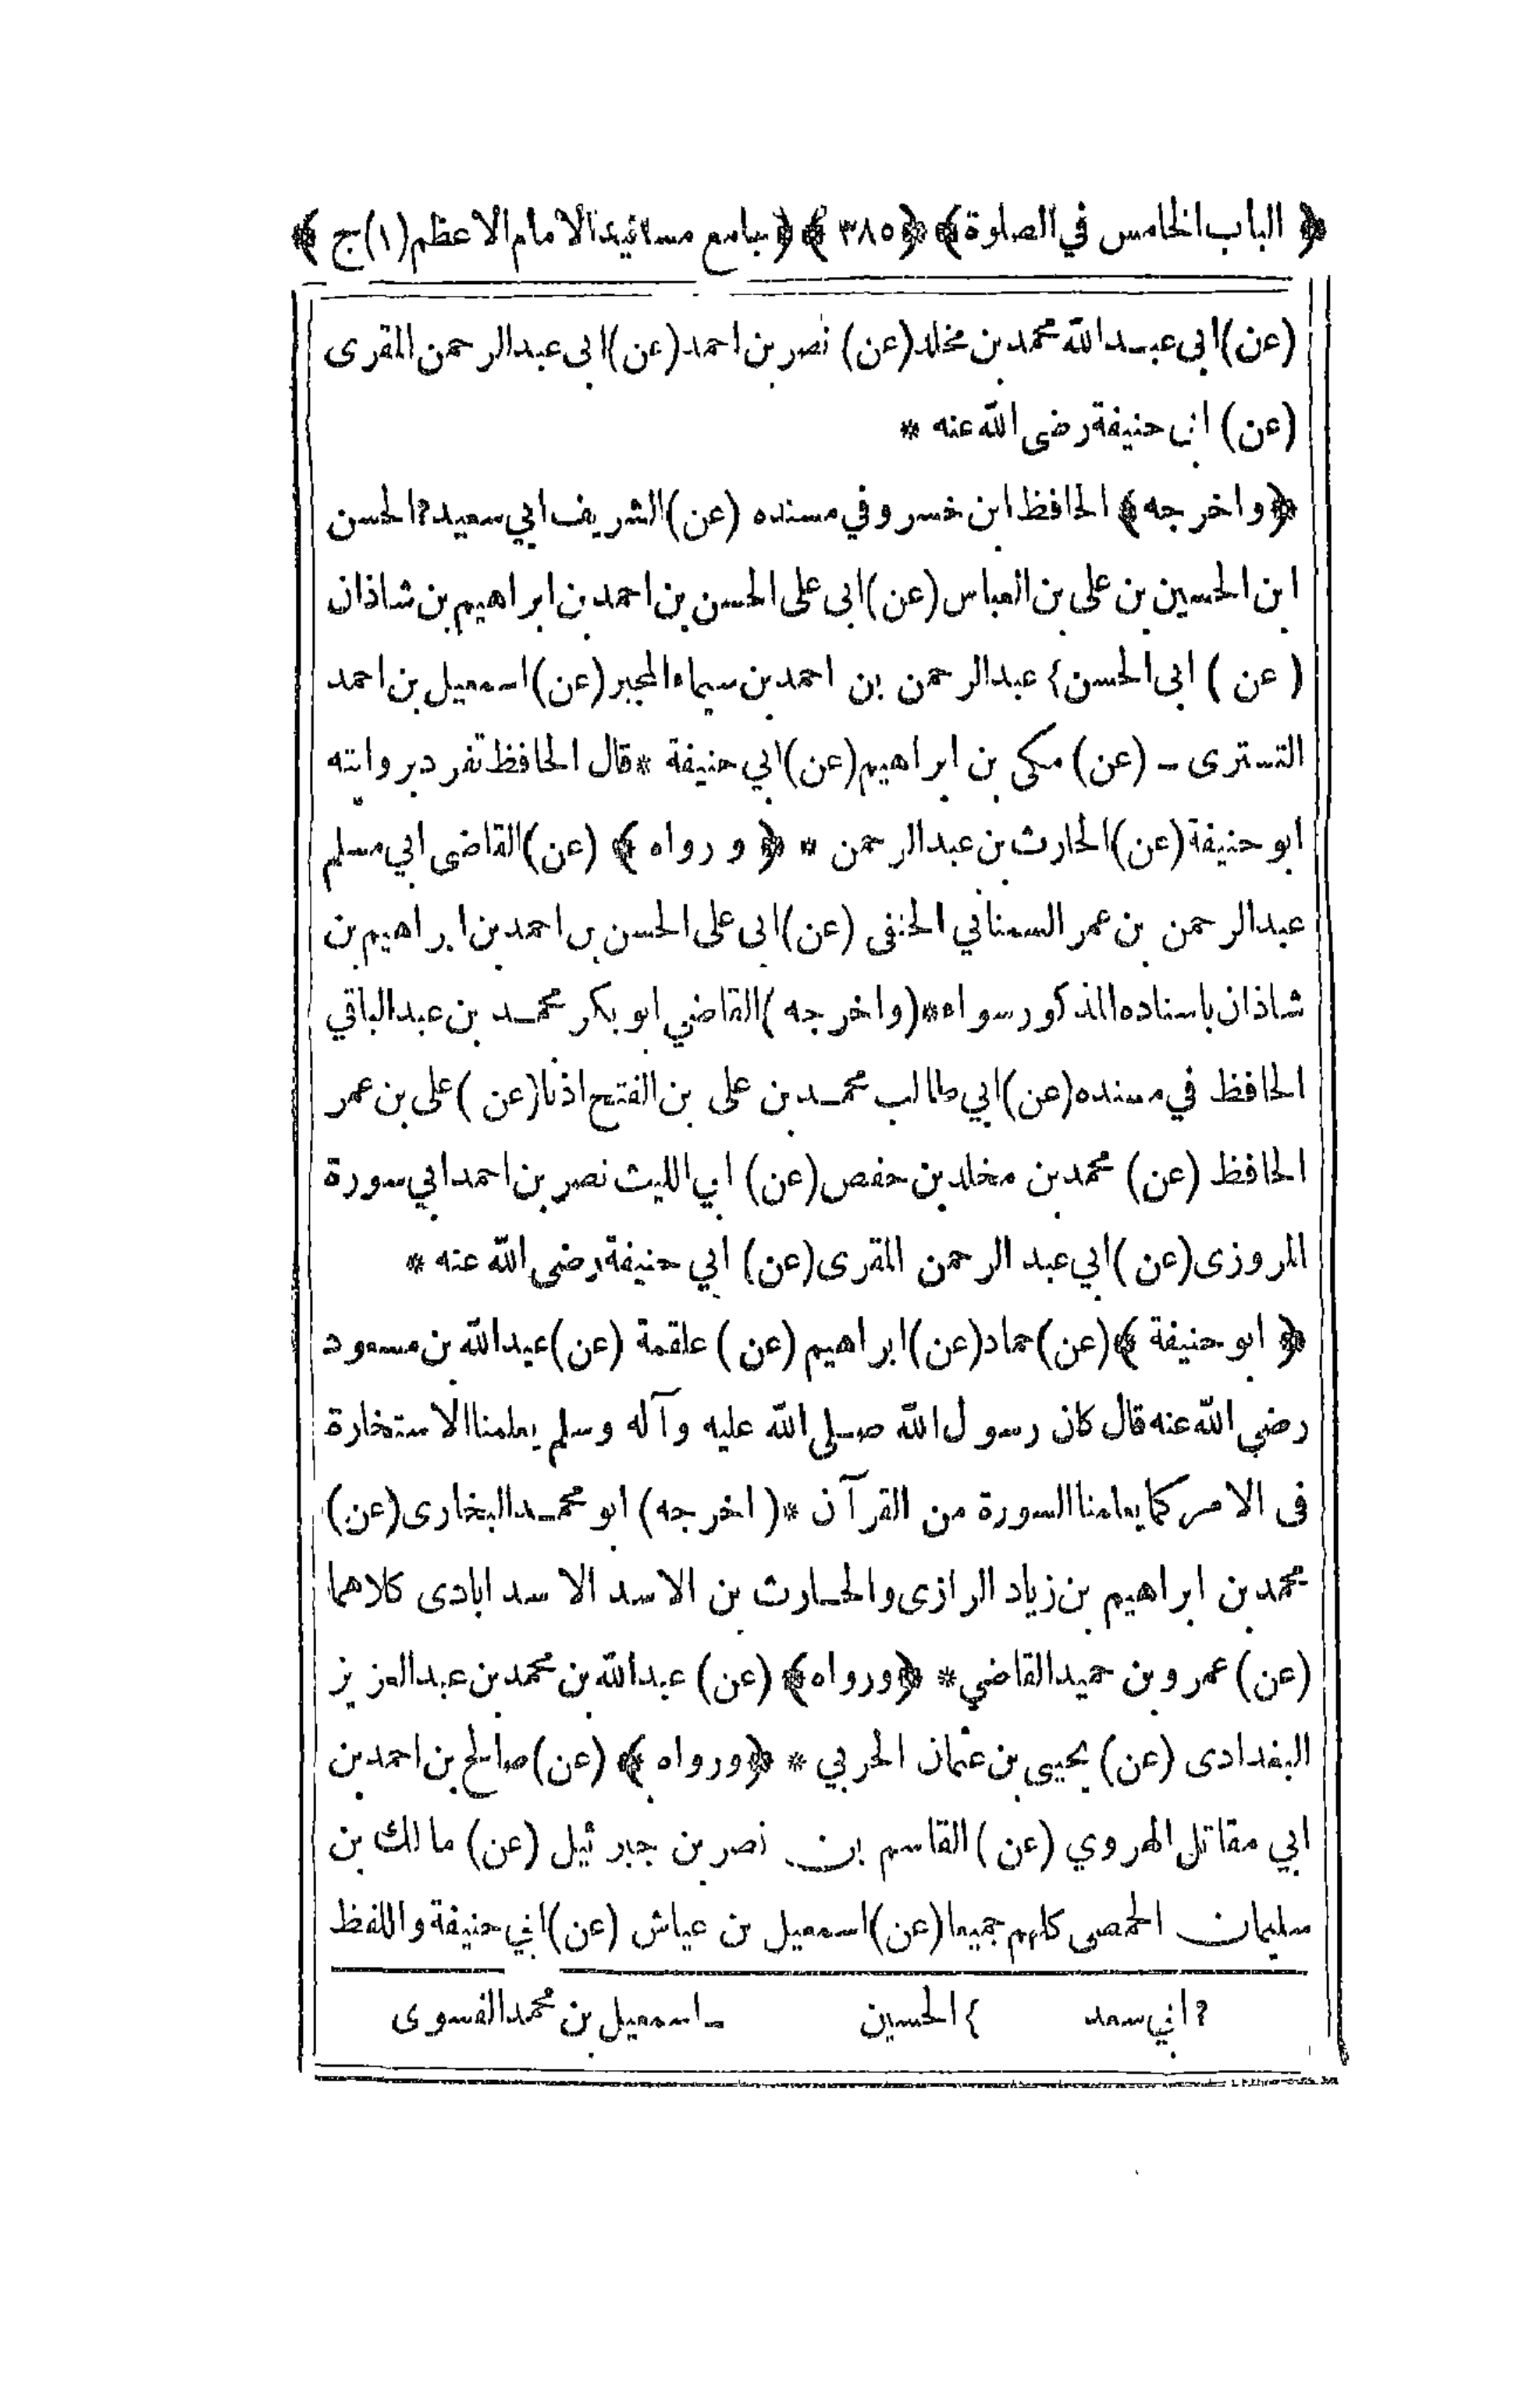 ﴿ الباب الخامس في الصلوة ﴾ ﴿ ٣٨٥ ﴾ ﴿ جامع مسانيد الامام الاعظم (١) ج ﴾
(عن) ابى عبد الله محمد بن مخلد (عن) نصر بن احمد (عن) ابى عبد الرحمن المقرى
(عن) ابى حنيفة رضى الله عنه *
﴿ واخرجه ﴾ الحافظ ابن خسرو في مسنده (عن) الشريف ابي سعيد ? الحسن
ابن الحسين بن على بن العباس (عن) ابى على الحسن بن احمد بن ابراهيم بن شاذان
(عن) ابى الحسن } عبد الرحمن بن احمد بن سيماء المجبر (عن) اسمعيل بن احمد
التسترى ـ (عن) مكى بن ابراهيم (عن) ابي حنيفة * قال الحافظ تفرد بروايته
ابو حنيفة (عن) الحارث بن عبد الرحمن * ﴿ ورواه ﴾ (عن) القاضى ابي مسلم
عبد الرحمن بن عمر السمناني الحنفى (عن) ابى على الحسن بن احمد بن ابراهيم بن
شاذان باسناده المذكور سواه * (واخرجه) القاضي ابو بكر محمد بن عبد الباقي
الحافظ في مسنده (عن) ابي طالب محمد بن على بن الفتح اذنا (عن) على بن عمر
الحافظ (عن) محمد بن مخلد بن حفص (عن) ابي الليث نصر بن احمد ابي سورة
المروزى (عن) ابي عبد الرحمن المقرى (عن) ابي حنيفة رضى الله عنه *
﴿ ابو حنيفة ﴾ (عن) حماد (عن) ابراهيم (عن) علقمة (عن) عبد الله بن مسعود
رضي الله عنه قال كان رسول الله صلى الله عليه وآله وسلم يعلمنا الاستخارة
فى الامر كما يعلمنا السورة من القرآن * (اخرجه) ابو محمد البخارى (عن)
محمد بن ابراهيم بن زياد الرازى والحارث بن الاسد الاسد ابادى كلاهما
(عن) عمرو بن حميد القاضي * ﴿ ورواه ﴾ (عن) عبد الله بن محمد بن عبد العزيز
البغدادى (عن) يحيى بن عثمان الحربي * ﴿ ورواه ﴾ (عن) صالح بن احمد بن
ابي مقاتل الهروي (عن) القاسم بن نصر بن جبرئيل (عن) مالك بن
سليمان الحمصى كلهم جميعا (عن) اسمعيل بن عياش (عن) ابي حنيفة واللفظ
? ابي سعد } الحسين ـ اسمعيل بن محمد الفسوى